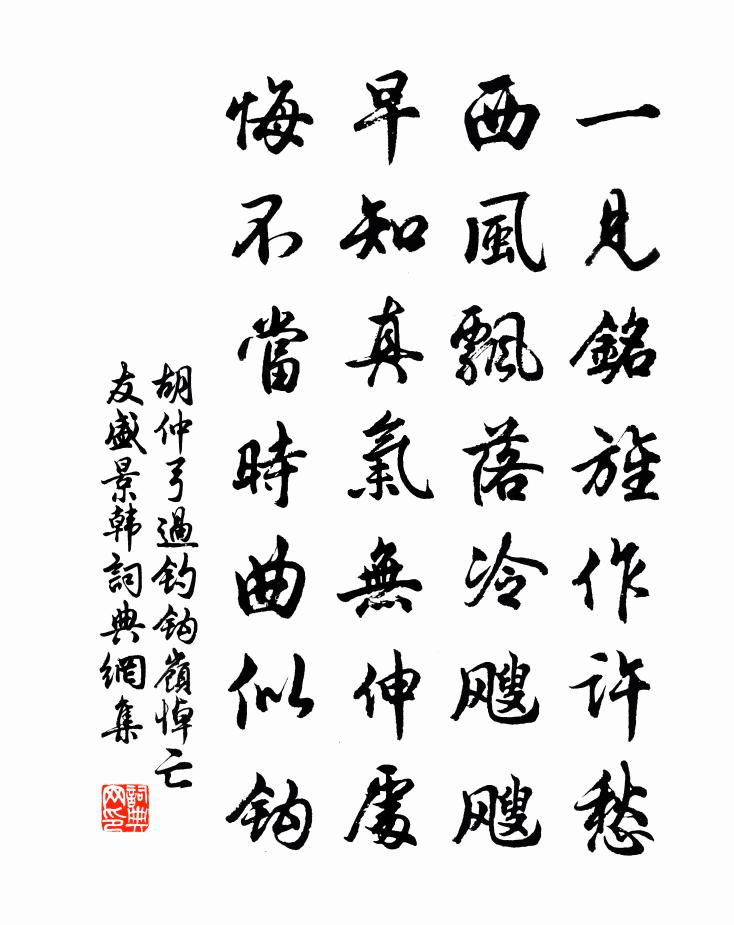 一見銘旌作許愁
西風飄落冷颼颼
早知真氣無伸處
悔不當時曲似鈎
胡仲弓過釣鈎嶺悼亡
友盛景韩詞典網集
詞典网印